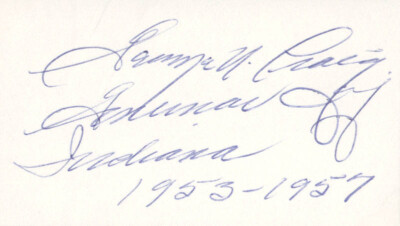 George N. Craig
Governor of
Indiana
1953-1957